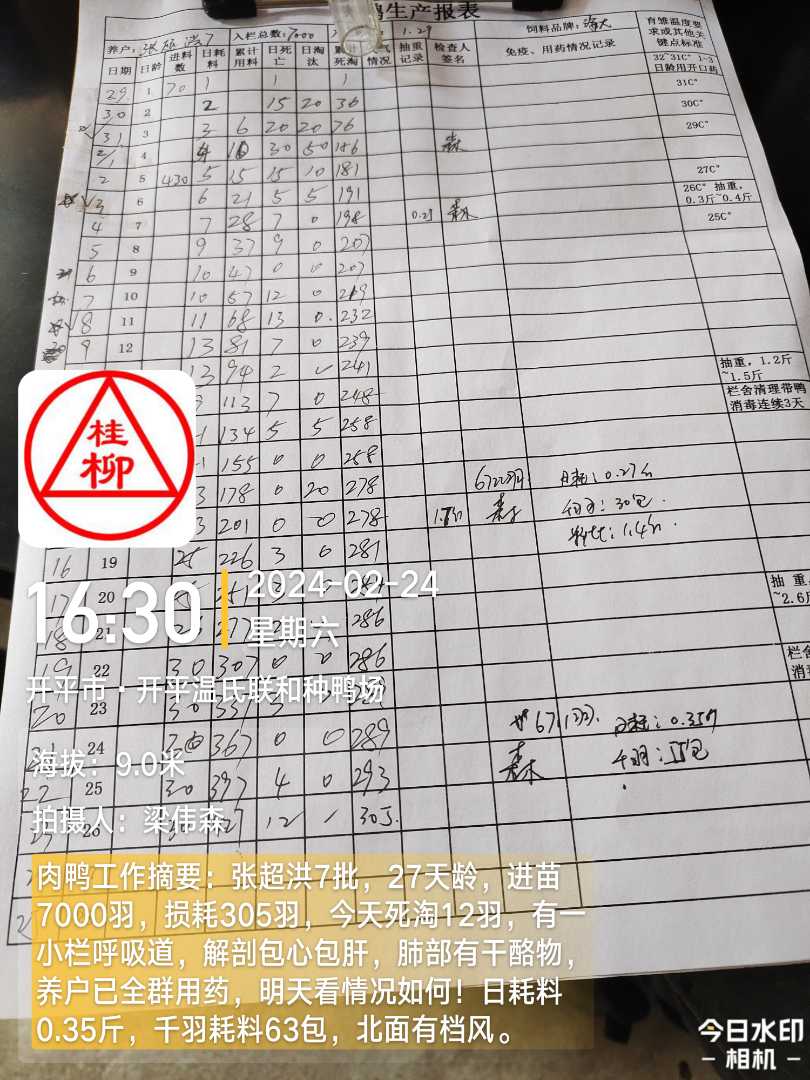 鸭生产报表
养户: 张超洪7 入栏总数: 7000 1.29 饲料品牌: 海大 育雏温度要求或其他关键点标准
日期 日龄 进料数 日耗料 累计用料 日死亡 日淘汰 累计死淘 天气情况 抽重记录 检查人签名 免疫、用药情况记录
32~31C° 1-3日龄用开口药
29 1 70 1 1 1 31C°
30 2 2 15 20 36 30C°
31 3 3 6 20 20 76 29C°
2/1 4 4 10 30 50 156 森
2 5 430 5 15 15 10 181 27C°
3 6 6 21 5 5 191 26C° 抽重,0.3斤~0.4斤
4 7 7 28 7 0 198 0.25 森 25C°
5 8 9 37 9 0 207
6 9 10 47 0 0 207
7 10 10 57 12 0 219
8 11 11 68 13 0 232
9 12 13 81 7 0 239
13 94 2 241 抽重,1.2斤~1.5斤
113 7 0 248 栏舍清理带鸭消毒连续3天
134 5 5 258
155 0 0 258
178 0 20 278 日耗: 0.27斤
201 0 0 278 森 千羽: 30包
16 19 25 226 3 0 281
17 20 251 抽重
~2.6斤
18 21 277 286
19 22 30 307 0 0 286
20 23 30 337 289
24 30 367 0 0 289 日耗: 0.35斤
22 25 30 397 4 0 293 森 千羽: 55包
26 427 12 305
桂柳
16:30
2024-02-24
星期六
开平市·开平温氏联和种鸭场
海拔: 9.0米
拍摄人: 梁伟森
肉鸭工作摘要: 张超洪7批，27天龄，进苗
7000羽，损耗305羽，今天死淘12羽，有一
小栏呼吸道，解剖包心包肝，肺部有干酪物，
养户已全群用药，明天看情况如何! 日耗料
0.35斤，千羽耗料63包，北面有档风。
今日水印
-相机-